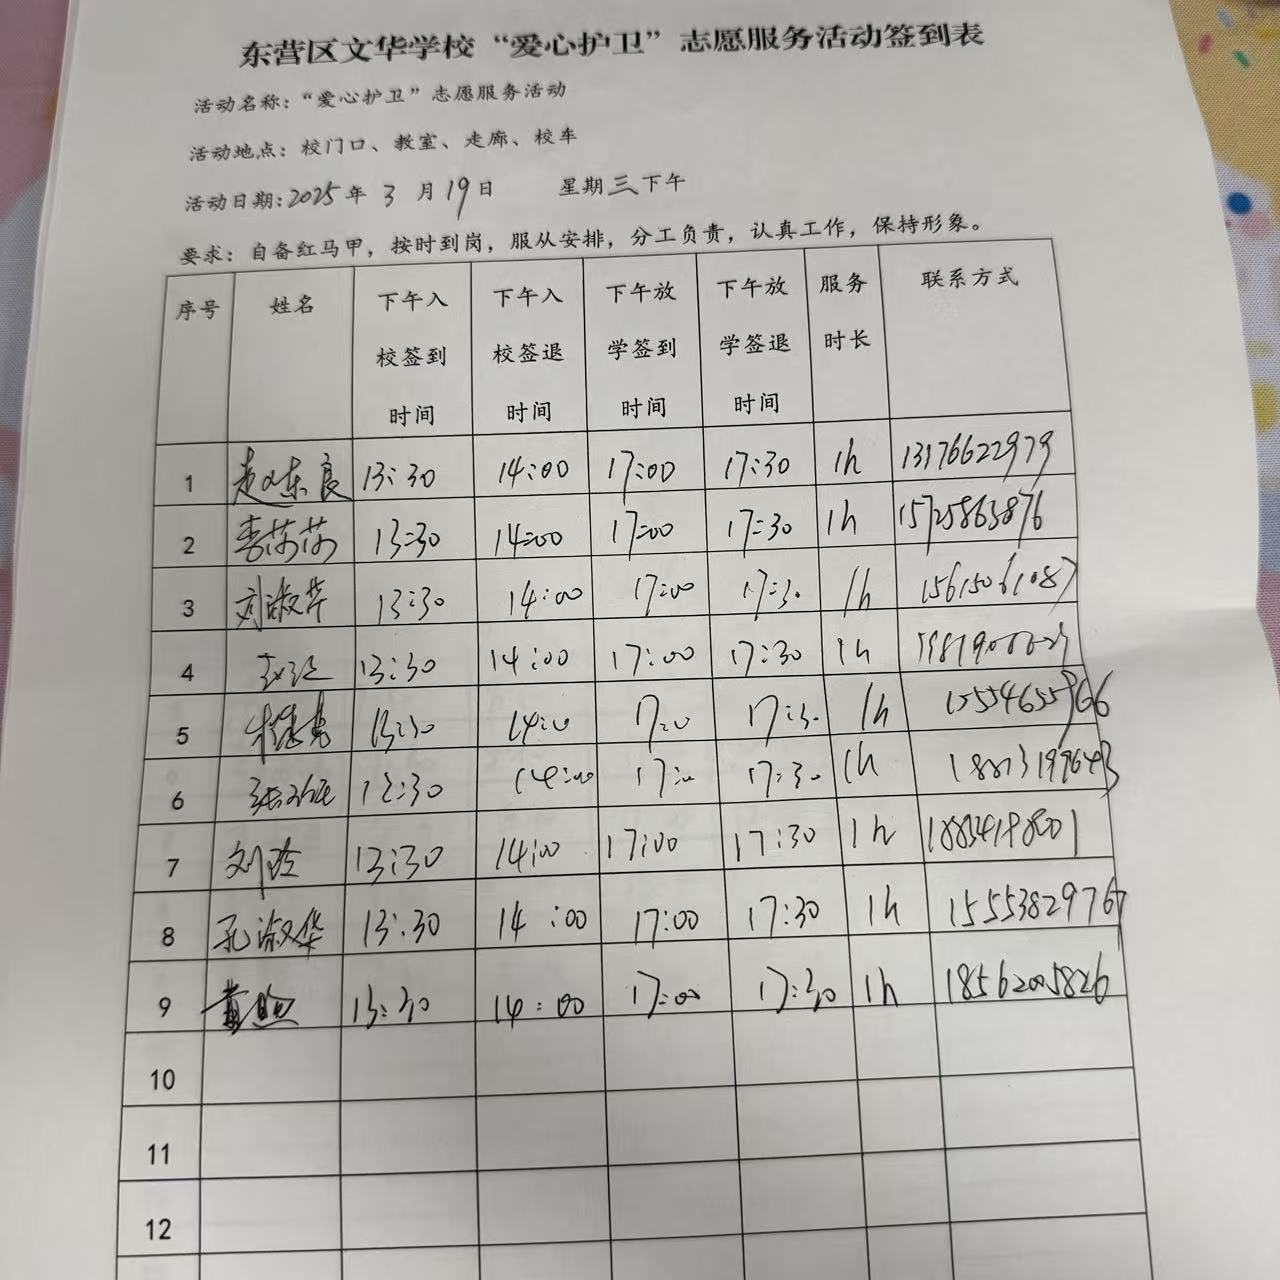 东营区文华学校“爱心护卫”志愿服务活动签到表
活动名称：“爱心护卫”志愿服务活动
活动地点：校门口、教室、走廊、校车
活动日期：2025年 3 月 19日 星期三下午
要求：自备红马甲，按时到岗，服从安排，分工负责，认真工作，保持形象。
序号 姓名 下午入校签到时间 下午入校签退时间 下午放学签到时间 下午放学签退时间 服务时长 联系方式
1 赵东良 13:30 14:00 17:00 17:30 1h 13176622979
2 李莎莎 13:30 14:00 17:00 17:30 1h 15725863876
3 刘淑华 13:30 14:00 17:00 17:30 1h 15615061087
4 13:30 14:00 17:00 17:30 1h
5 13:30 14:00 17:00 17:30 1h 15554655966
6 13:30 14:00 17:00 17:30 1h
7 刘玲 13:30 14:00 17:00 17:30 1h 18834198801
8 孔淑华 13:30 14:00 17:00 17:30 1h 15553829767
9 13:30 14:00 17:00 17:30 1h 18562005826
10
11
12